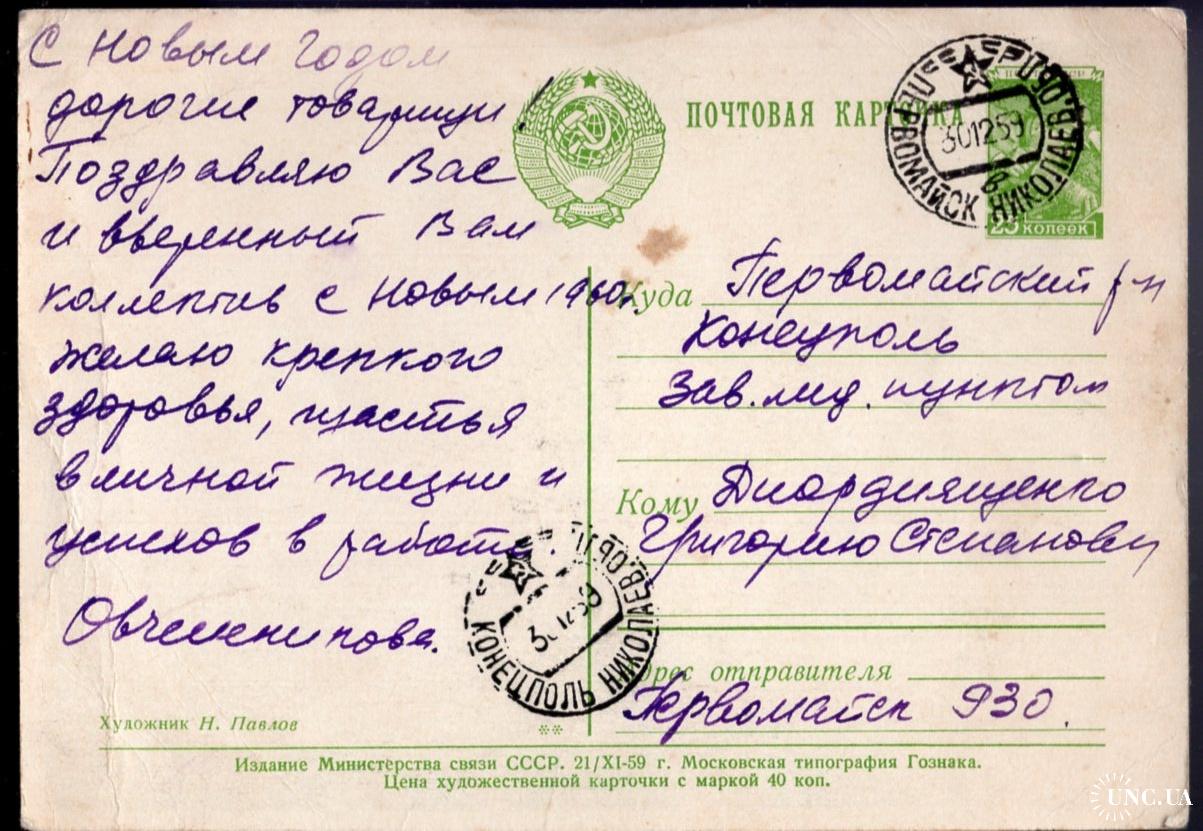 С Новым Годом
дорогие товарищи!
Поздравляю Вас
и вверенный Вам
коллектив с Новым 1960г.
Желаю крепкого
здоровья, щастья
в личной жизни и
успехов в работе.
Овчинникова.
Художник Н. Павлов
ПОЧТОВАЯ КАРТОЧКА
УССР ПЕРВОМАЙСК НИКОЛАЕВ.ОБЛ.
301259
в
25 КОПЕЕК
Куда Первомайский р-н
Конецполь
Зав. мед. пунктом
Кому
Григорию Степанович
КОНЕЦПОЛЬ НИКОЛАЕВ.ОБЛ.
Адрес отправителя
Первомайск
**
Издание Министерства связи СССР. 21/XI-59 г. Московская типография Гознака.
Цена художественной карточки с маркой 40 коп.
UNC.UA